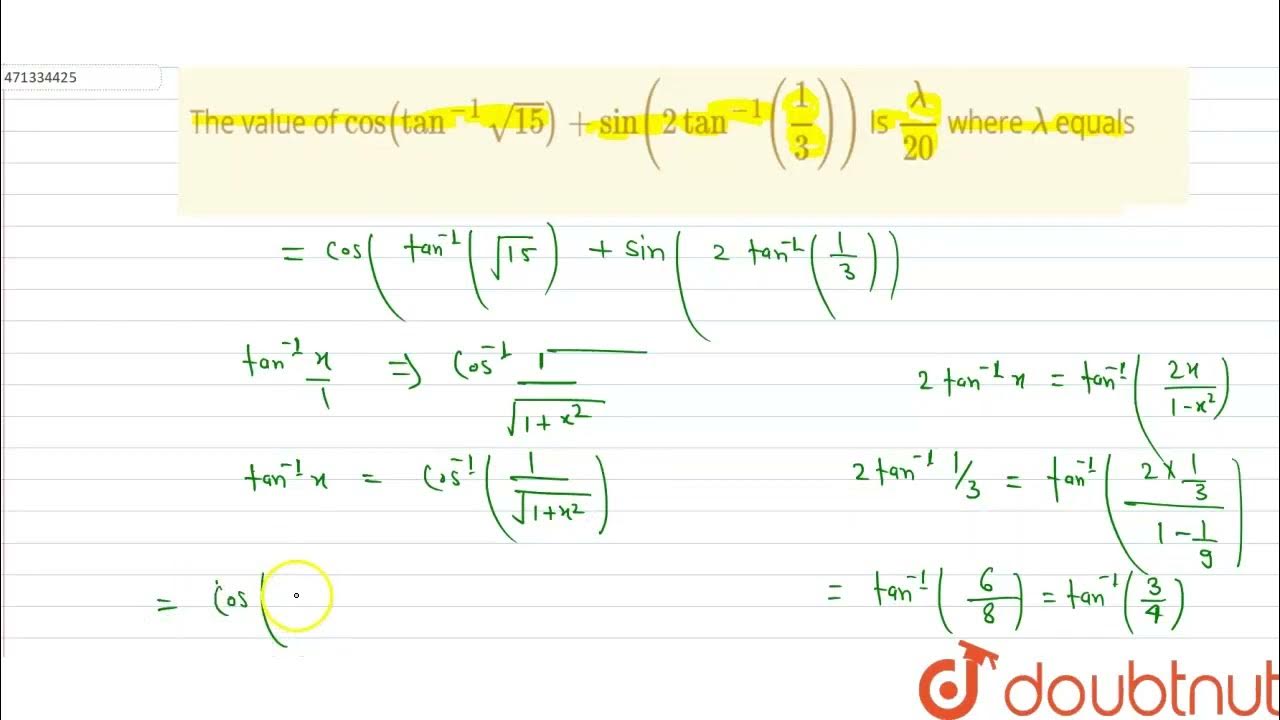 471334425
The value of cos(tan⁻¹√15) + sin(2 tan⁻¹(1/3)) Is λ/20 where λ equals
= cos( tan⁻¹(√15) + sin( 2 tan⁻¹(1/3))
tan⁻¹ x/1 ⇒ cos⁻¹ 1/√(1+x²)
2 tan⁻¹ x = tan⁻¹(2x/(1-x²))
tan⁻¹ x = cos⁻¹(1/√(1+x²))
2 tan⁻¹ 1/3 = tan⁻¹((2×1/3)/(1-1/9))
= cos(
= tan⁻¹(6/8) = tan⁻¹(3/4)
doubtnut